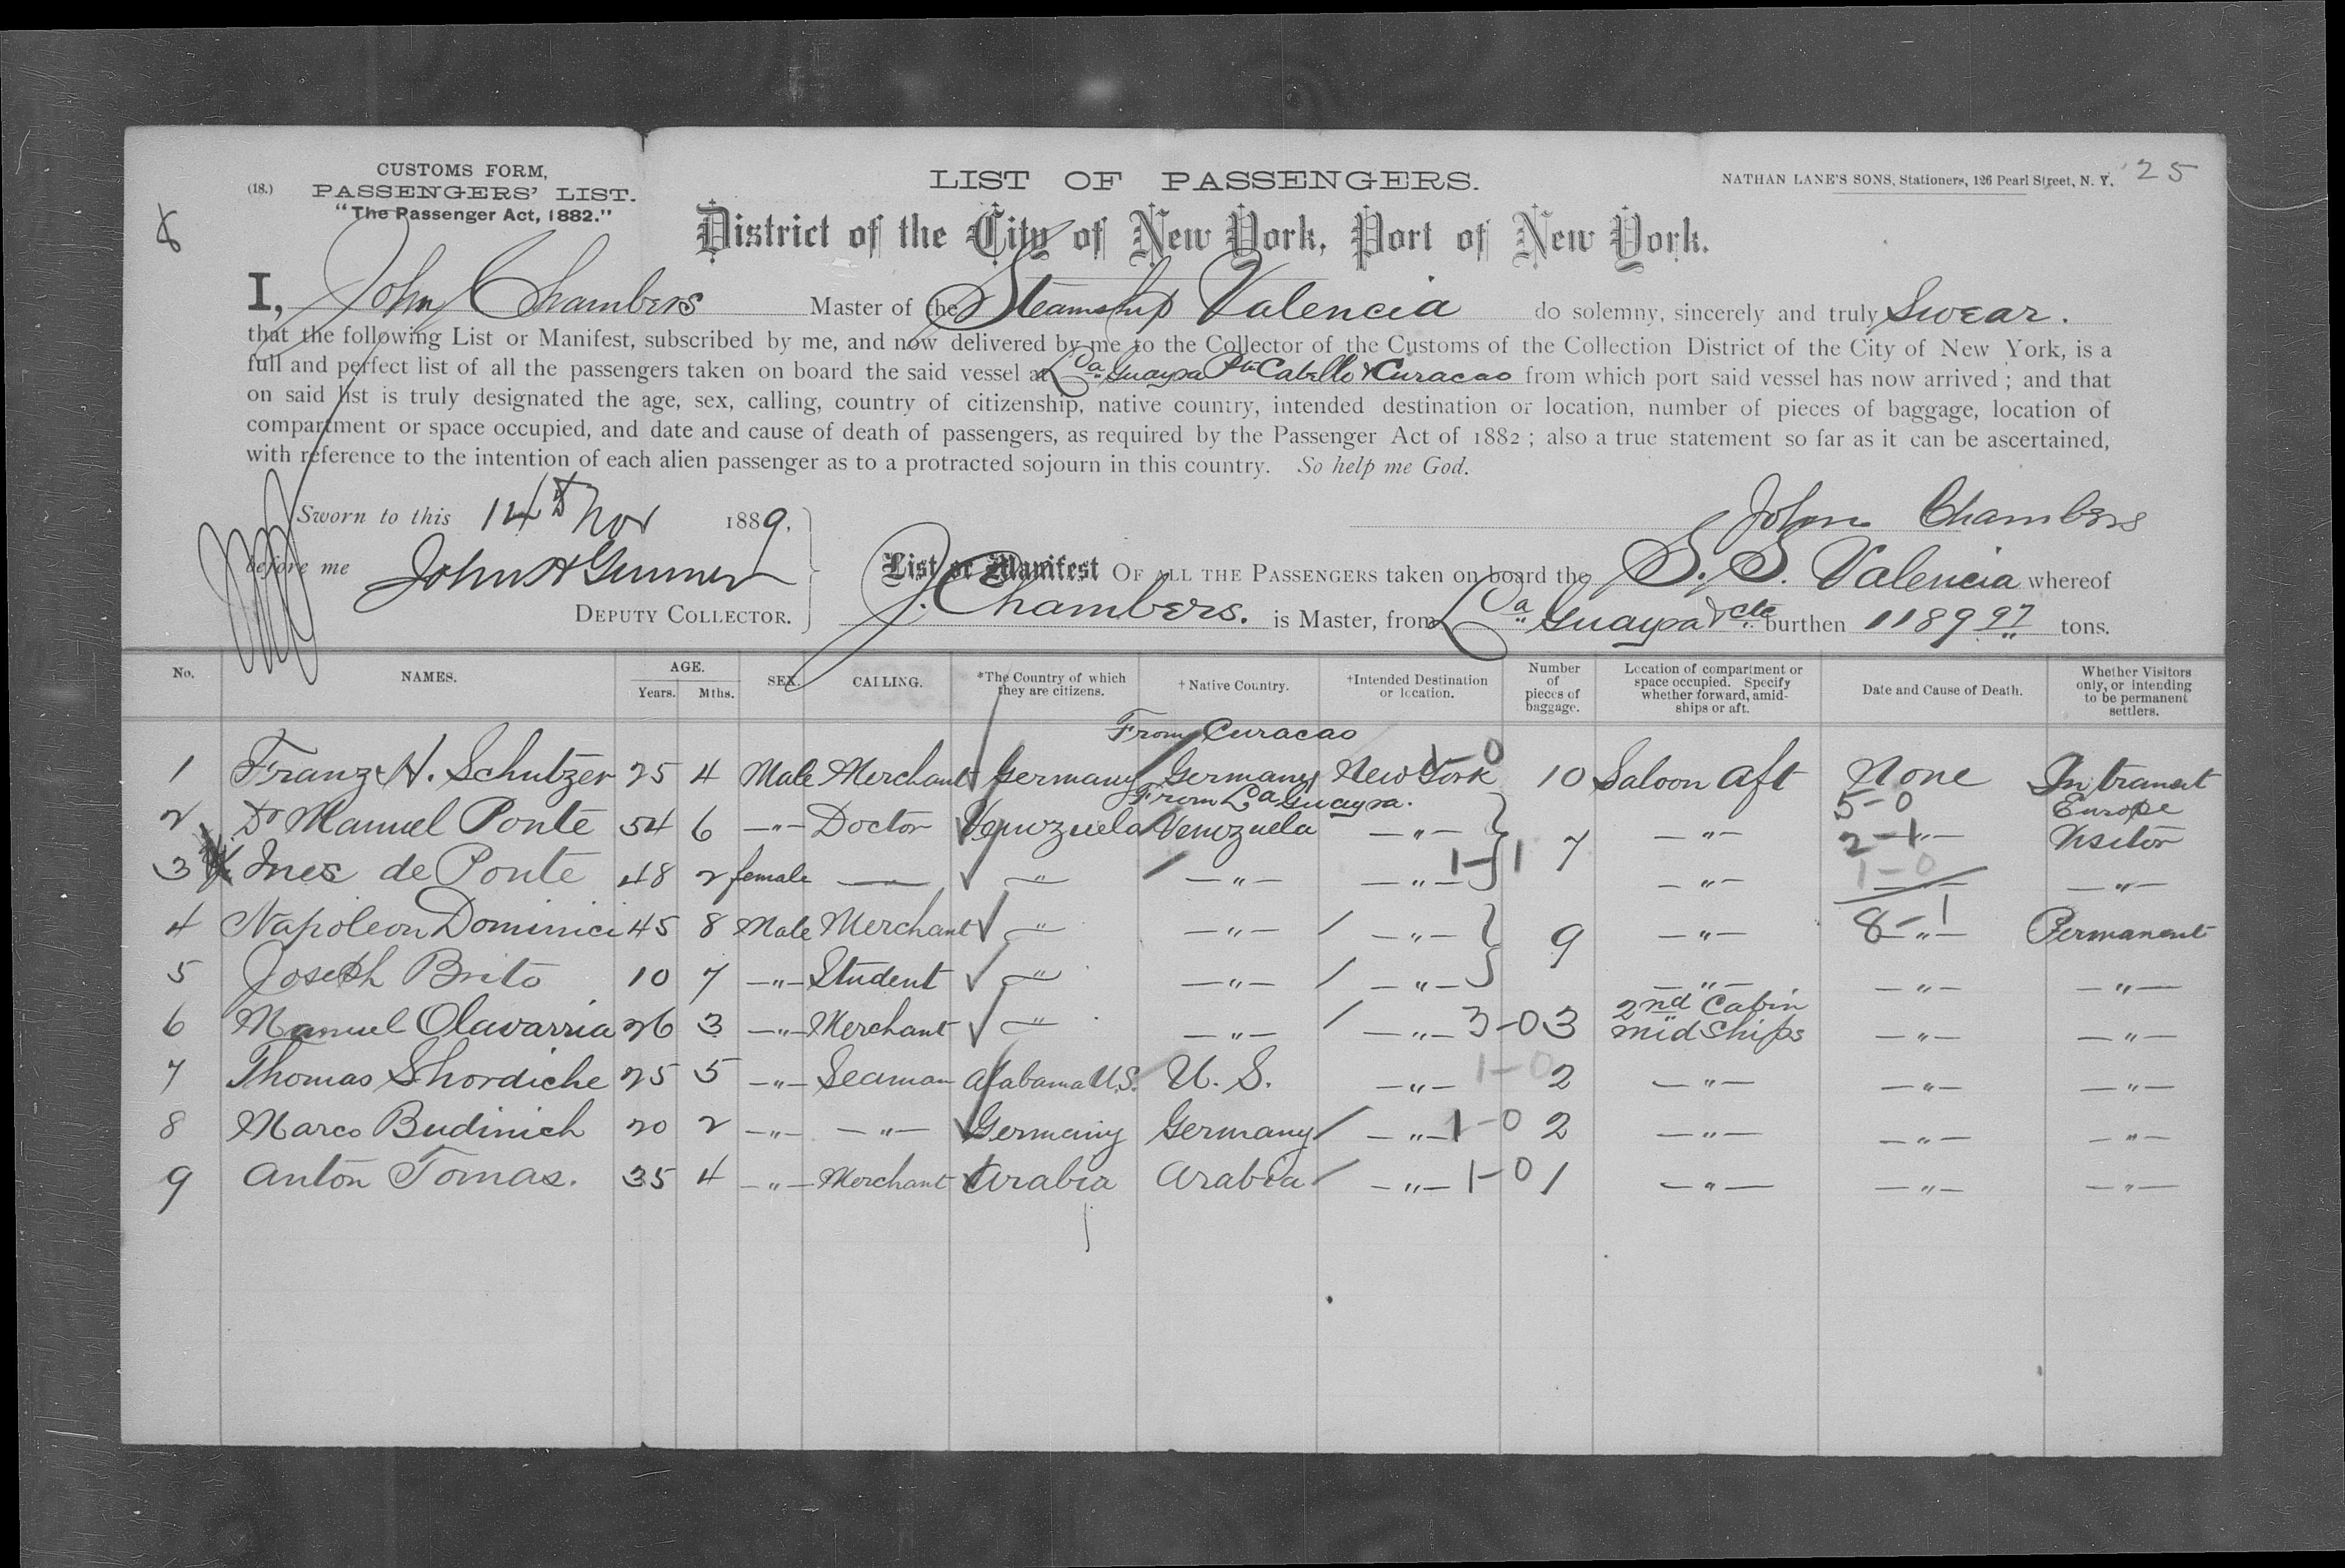 CUSTOMS FORM,
(18.) PASSENGERS' LIST.
"The Passenger Act, 1882."
LIST OF PASSENGERS.
NATHAN LANE'S SONS, Stationers, 126 Pearl Street, N. Y. 25
District of the City of New York, Port of New York.
I, John Chambers Master of the Steamship Valencia do solemny, sincerely and truly Swear.
that the following List or Manifest, subscribed by me, and now delivered by me to the Collector of the Customs of the Collection District of the City of New York, is a
full and perfect list of all the passengers taken on board the said vessel at La Guayra Pto Cabello & Curacao from which port said vessel has now arrived; and that
on said list is truly designated the age, sex, calling, country of citizenship, native country, intended destination or location, number of pieces of baggage, location of
compartment or space occupied, and date and cause of death of passengers, as required by the Passenger Act of 1882; also a true statement so far as it can be ascertained,
with reference to the intention of each alien passenger as to a protracted sojourn in this country. So help me God.
Sworn to this 14th Nov 1889.
John Chambers
before me John H
DEPUTY COLLECTOR.
List or Manifest OF ALL THE PASSENGERS taken on board the S. S. Valencia whereof
J. Chambers. is Master, from La Guayra & etc burthen 1189 97 tons.
No. NAMES. AGE. Years. Mths. SEX. CALLING. *The Country of which they are citizens. †Native Country. †Intended Destination or location. Number of pieces of baggage. Location of compartment or space occupied. Specify whether forward, amidships or aft. Date and Cause of Death. Whether Visitors only, or intending to be permanent settlers.
From Curacao
1 Franz H. Schutzer 25 4 Male Merchant Germany Germany New York 1-0 10 Saloon Aft None In transit Europe
From La Guayra.
2 Dr Manuel Ponte 54 6 -"- Doctor Venezuela Venezuela -"- 7 -"- 5-0 2-1 -"- Visitor
3 Ines de Ponte 48 2 female — " -"- -"- 1-1 -"- 1-0 -"-
4 Napoleon Dominici 45 8 Male Merchant " -"- -"- 9 -"- 8-1 -"- Permanent
5 Joseph Brito 10 7 -"- Student " -"- -"- -"- -"- -"-
6 Manuel Olavarria 26 3 -"- Merchant " -"- -"- 3-0 3 2nd Cabin mid Ships -"- -"-
7 Thomas Shordiche 25 5 -"- Seaman Alabama U.S. U. S. -"- 1-0 2 -"- -"- -"-
8 Marco Budinich 20 2 -"- -"- Germany Germany -"- 1-0 2 -"- -"- -"-
9 Anton Tomas. 35 4 -"- Merchant Arabia Arabia -"- 1-0 1 -"- -"- -"-